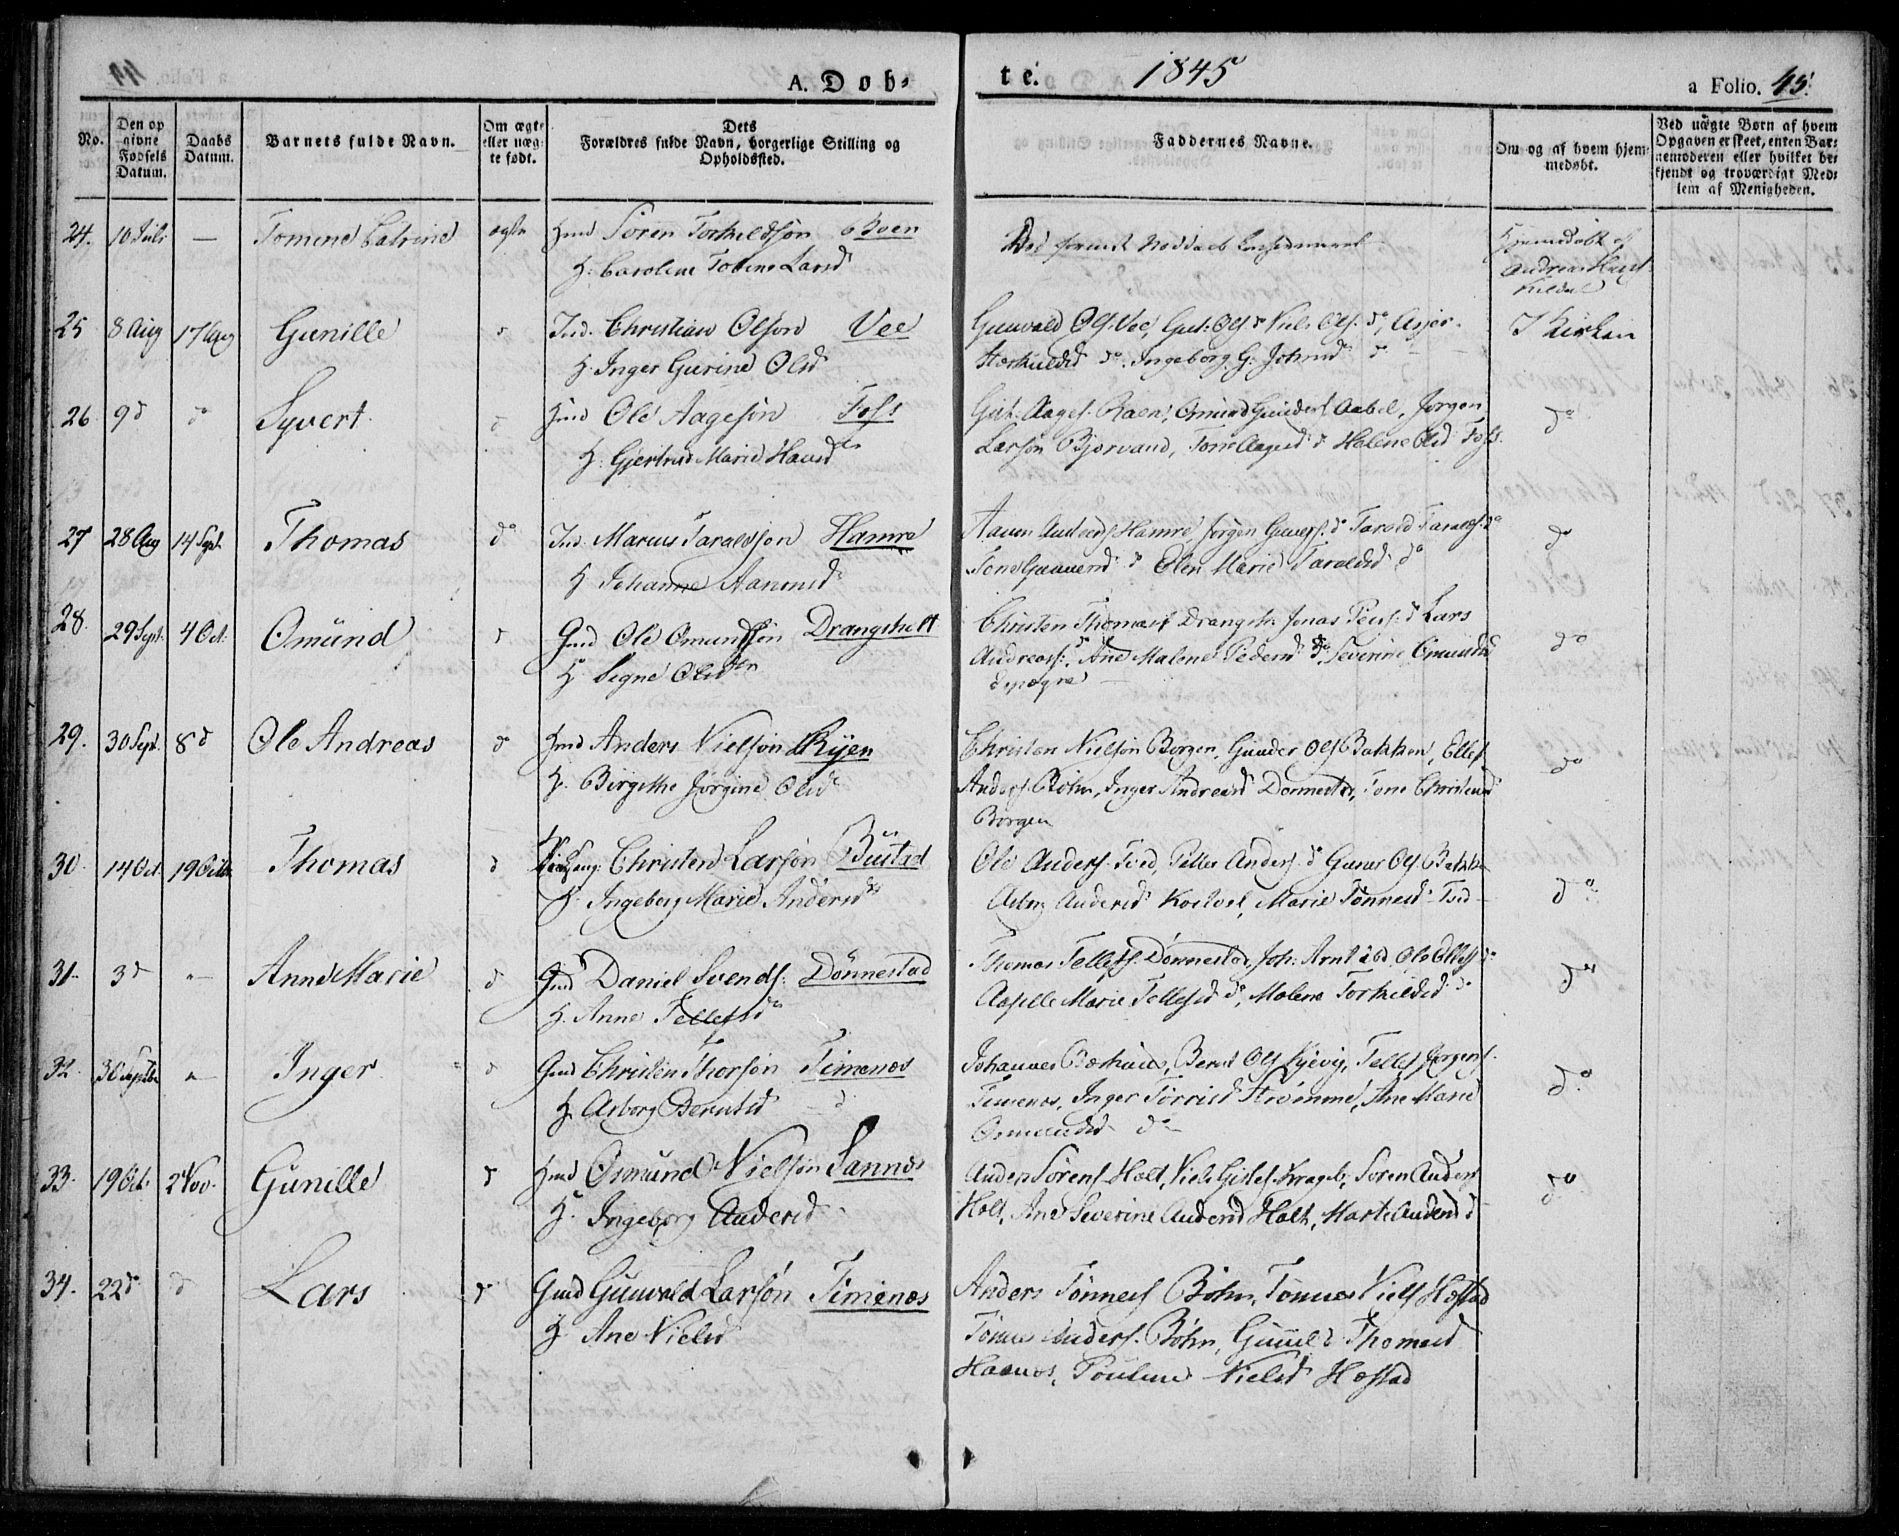 A. Døb-
te. 1845
a Folio. 45.
No.
Den op
givne
Fødsels
Datum.
Daabs
Datum.
Barnets fulde Navn.
Om ægte
eller uæg-
te født.
Dets
Forældres fulde Navn, borgerlige Stilling og
Opholdssted.
Faddernes Navne.
Om og af hvem hjem-
medøbt.
Ved uägte Børn af hvem
Opgaven er skeet, enten Bar-
nemoderen eller hvilket be-
kjendt og troværdigt Med-
lem af Menigheden.
24. 10 Juli — Tomine Catrine ægte Gmd Sören Torkildsøn Boen
H: Caroline Tobine Larsd
Hjemmedøbt af
Andreas
25 8 Aug 17 Aug Gunille d Ind. Christian Olsøn Vee
H. Inger Gurine Olsd
Gunvald Ols. Vee, Gut: Ols d Niels Ols: do, Asjer
do. Ingeborg G. Johnsd d
I Kirken
26 9 d do Syvert. d Gmd Ole Aagesøn Foss
H. Gjertrud Marie Hansdtr
Gut: Aages. Raen, Omund Gunders Aabel, Jørgen
Larsøn Bjorvand, Tone Aagesd d Helene Olsd Foss.
do
27 28 Aug 14 Sept. Thomas do Ind. Marcus Taraldsøn Hamre
H Johanne Aanensd
Aanen Anders Hamre Jørgen Guners. d Tarald Taralds. do
Tone Gunnersd d Elen Marie Taraldsd do
do
28. 29 Sept. 4 Oct. Omünd d Gmd Ole Omundsøn Drangsholt
H Signe Olsdtr
Christen Thomass Drangsh: Jonas Peders: d Lars
Andreass: do Ane Malene Pedersd do, Severine Omundsd
do
29. 30 Sept. 8 d Ole Andreas d Gmd Anders Nielsøn Ryen
H. Birgithe Jørgine Olsd
Christen Nielsøn Børgen, Gunder Ols Bakken, Ellef
Anders. Bøhn, Inger Andreasd Dønnestad, Tone Christensd
Børgen
do
30. 14 Oct. 19 Octbr Thomas d Christen Larsøn Bustad
H. Ingeborg Marie Andersdr
Ole Anders. Tved, Peller Anders. d Gunar Ols. Bakken
Asborg Andersd Marie Tønnesd Tved
do
31. 3 d " Anne Marie d Gmd Daniel Svends. Dönnestad
H. Anne Tellefsdr
Thomas Tellefs. Dønnestad, Joh: Arnt d Ole Ellefs do
Marie Tellefsd do, Malene Torkildsd do
do
32. 30 Septbr " Inger d Gmd Christen Thorsøn Timenæs
H. Asborg Berntsd d
Johannes Bernt Ols Kjevig, Tellef Jørgens.
Timenes, Inger Torrisd Strømme, Ane Marie
Osmundsd do
do
33. 19 Oct. 2 Nov. Gunille d Gmd Osmund Nielsøn Sannes
H. Ingeborg Andersd
Anders Sørens Holt, Niels Gislefs. Krageb, Søren Anders
Holt, Ane Severine Andersd Holt, Marte Andersd d
do
34. 22 do d Lars d Gmd Gunvald Larsøn Timenæs
H Ane Nielsd
Anders Tønness Bøhn, Tønnes Niels Hæstad
Tønnes Anders. Bøhn, Gunild Thomasd
Haanes, Pouline Nielsd Hæstad